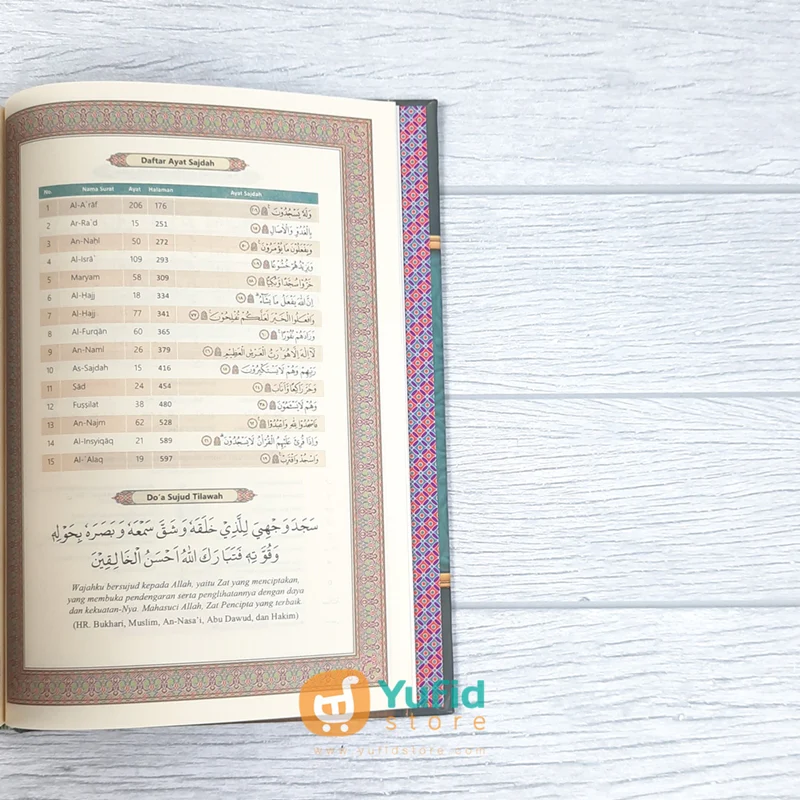 Daftar Ayat Sajdah
No. Nama Surat Ayat Halaman Ayat Sajdah
1 Al-A`râf 206 176 وَلَهٗ يَسْجُدُوْنَ ۩
2 Ar-Ra`d 15 251 بِالْغُدُوِّ وَالْاٰصَالِ ۩
3 An-Naḥl 50 272 وَيَفْعَلُوْنَ مَا يُؤْمَرُوْنَ ۩
4 Al-Isrâ` 109 293 وَيَزِيْدُهُمْ خُشُوْعًا ۩
5 Maryam 58 309 خَرُّوْا سُجَّدًا وَّبُكِيًّا ۩
6 Al-Hajj 18 334 اِنَّ اللّٰهَ يَفْعَلُ مَا يَشَاۤءُ ۩
7 Al-Hajj 77 341 وَافْعَلُوا الْخَيْرَ لَعَلَّكُمْ تُفْلِحُوْنَ ۩
8 Al-Furqân 60 365 وَزَادَهُمْ نُفُوْرًا ۩
9 An-Naml 26 379 لَآ اِلٰهَ اِلَّا هُوَ رَبُّ الْعَرْشِ الْعَظِيْمِ ۩
10 As-Sajdah 15 416 رَبِّهِمْ وَهُمْ لَا يَسْتَكْبِرُوْنَ ۩
11 Ṣâd 24 454 وَخَرَّ رَاكِعًا وَّاَنَابَ ۩
12 Fuṣṣilat 38 480 وَهُمْ لَا يَسْـَٔمُوْنَ ۩
13 An-Najm 62 528 فَاسْجُدُوْا لِلّٰهِ وَاعْبُدُوْا ۩
14 Al-Insyiqâq 21 589 وَاِذَا قُرِئَ عَلَيْهِمُ الْقُرْاٰنُ لَا يَسْجُدُوْنَ ۩
15 Al-`Alaq 19 597 وَاسْجُدْ وَاقْتَرِبْ ۩
Do'a Sujud Tilawah
سَجَدَ وَجْهِيَ لِلَّذِيْ خَلَقَهٗ وَشَقَّ سَمْعَهٗ وَبَصَرَهٗ بِحَوْلِهٖ
وَقُوَّتِهٖ فَتَبَارَكَ اللّٰهُ اَحْسَنُ الْخَالِقِيْنَ
Wajahku bersujud kepada Allah, yaitu Zat yang menciptakan,
yang membuka pendengaran serta penglihatannya dengan daya
dan kekuatan-Nya. Mahasuci Allah, Zat Pencipta yang terbaik.
(HR. Bukhari, Muslim, An-Nasa'i, Abu Dawud, dan Hakim)
Yufid
store
www.yufidstore.com